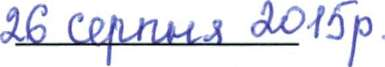 26 серпня 2015р.